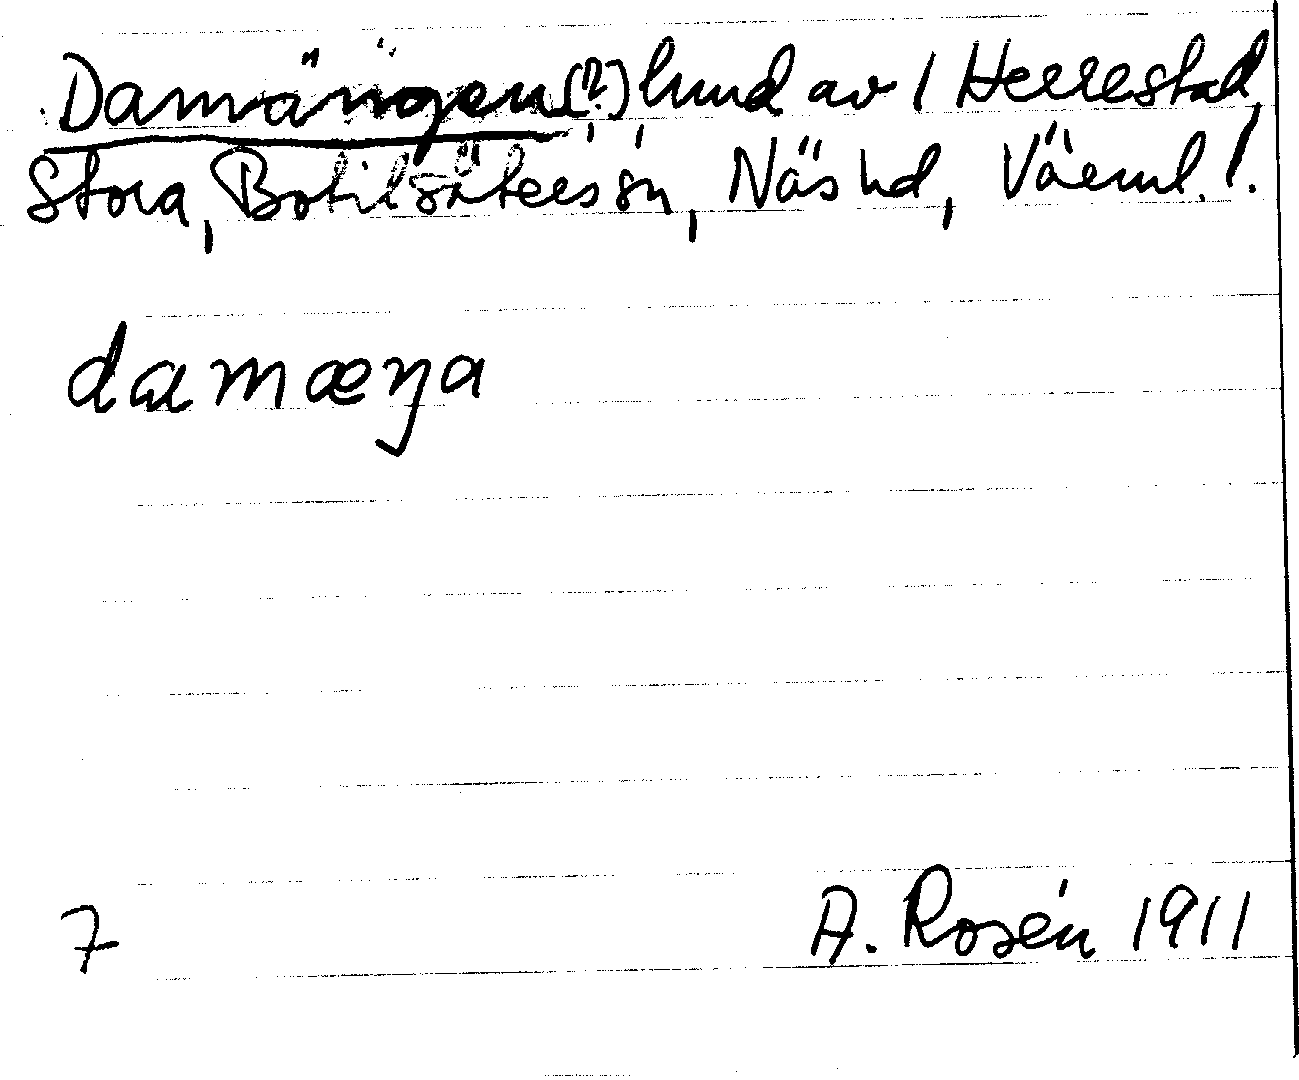 Damängen (?) lund av 1 Herrestad,
Stora, Botilsäters sn, Näs hd, Värml. l.
damæŋa
7 A. Rosén 1911